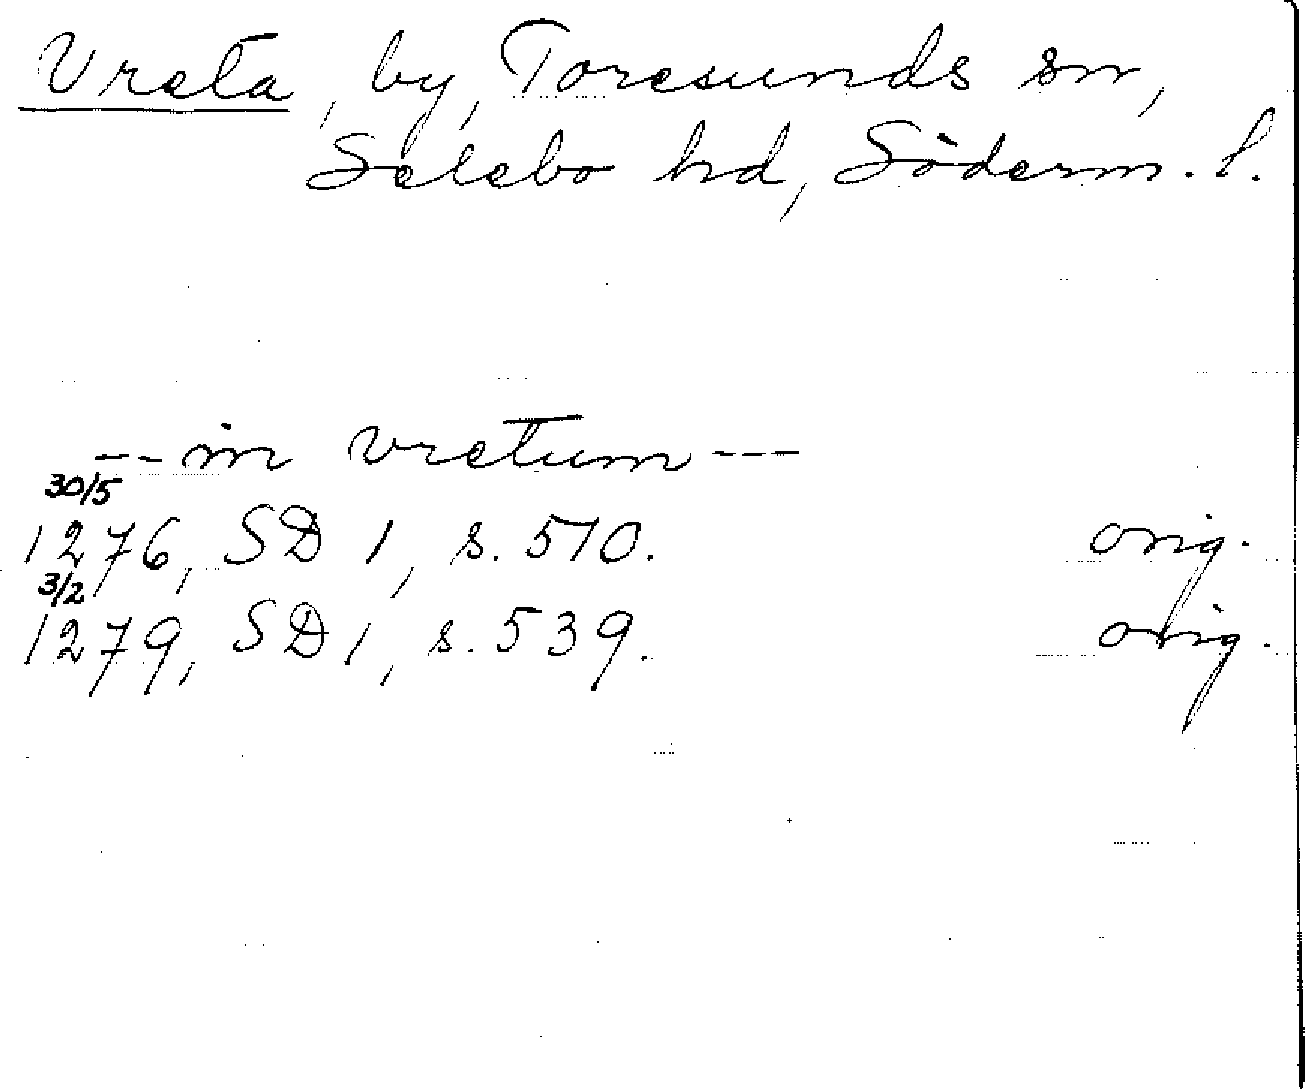 Vreta, by, Toresunds sn,
Selebo hd, Söderm. l.
-- in vretum ---
30/5
1276, SD 1, s. 510. orig.
3/2
1279, SD 1, s. 539. orig.